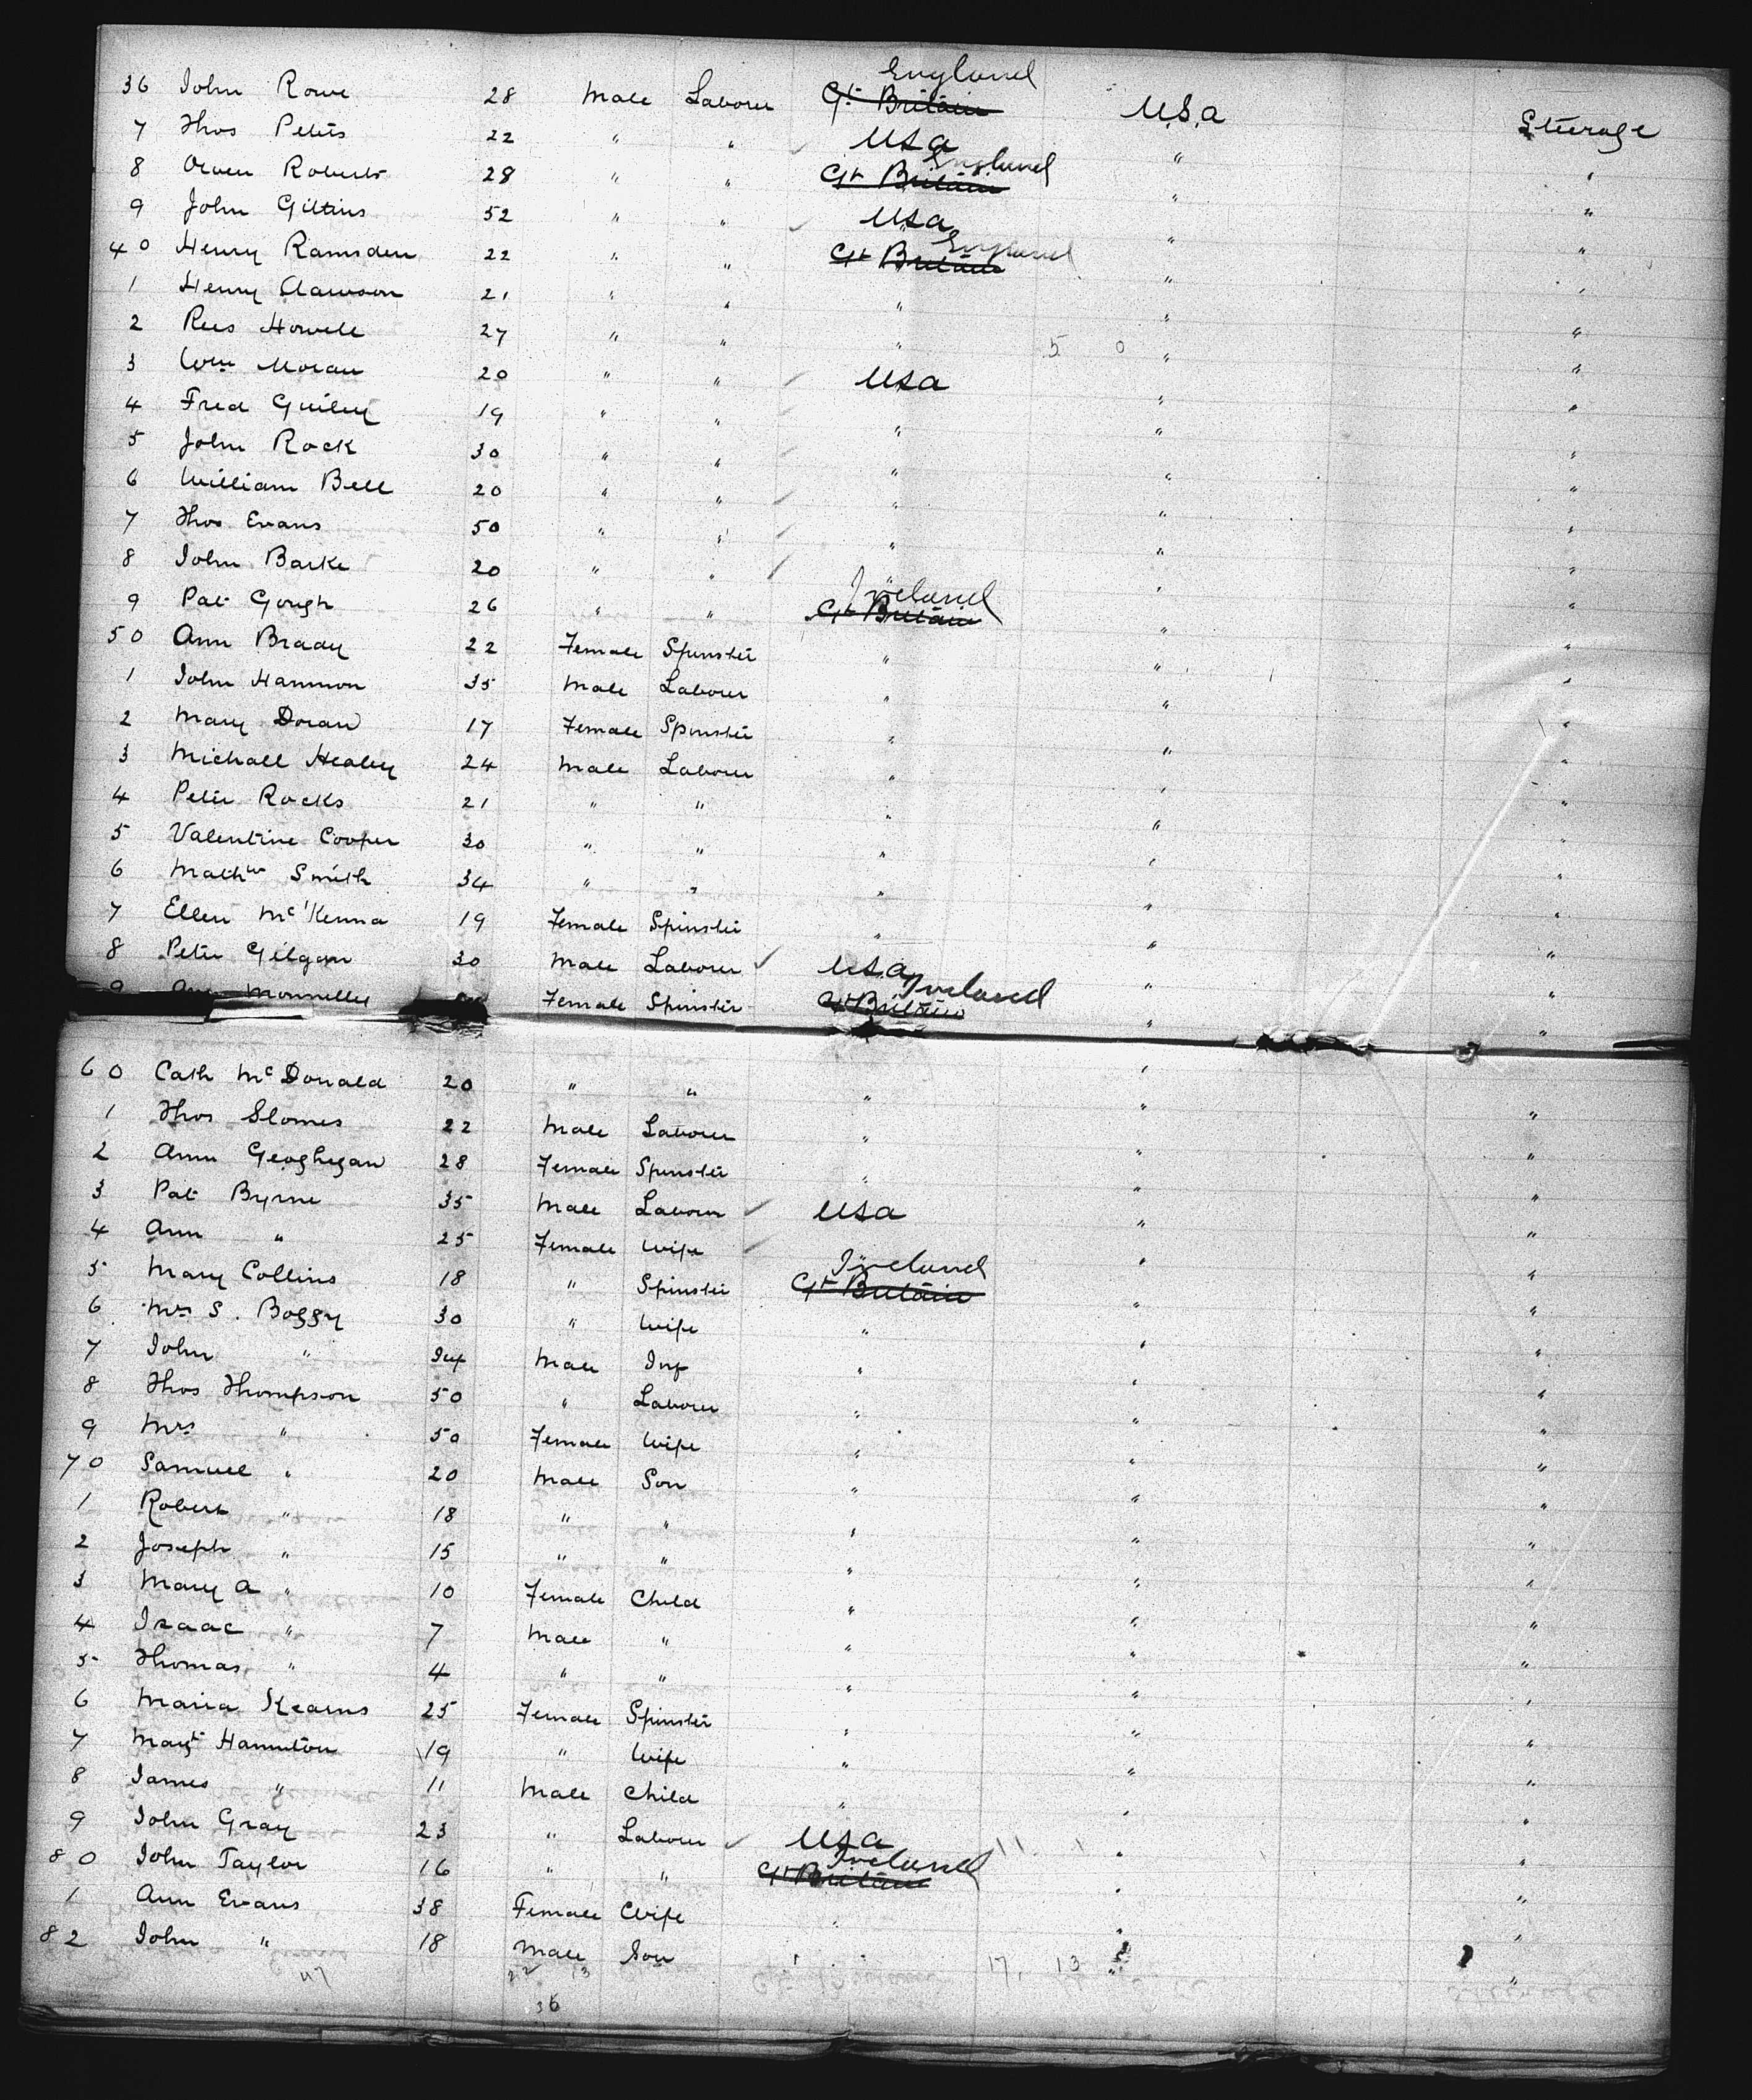 36 John Rowe 28 Male Laborer England Gt. Britain U.S.a Steerage
7 Thos Peters 22 " " USa " "
8 Owen Roberts 28 " " England Gt Britain " "
9 John Gittins 52 " " USa " "
40 Henry Ramsden 22 " " England Gt Britain " "
1 Henry Clawson 21 " " " " "
2 Rees Howell 27 " " " 5 0 " "
3 Wm Moran 20 " " USa " "
4 Fred 19 " " " " "
5 John Rock 30 " " " " "
6 William Bell 20 " " " " "
7 Thos Evans 50 " " " " "
8 John Barke 20 " " " " "
9 Pat Gough 26 " " Ireland Gt Britain " "
50 Ann Brady 22 Female Spinster " " "
1 John Hammon 35 Male Laborer " " "
2 Mary Doran 17 Female Spinster " " "
3 Michall Healey 24 Male Laborer " " "
4 Peter Rocks 21 " " " " "
5 Valentine Cooper 30 " " " " "
6 Mathw Smith 34 " " " " "
7 Ellen McKenna 19 Female Spinster " " "
8 Peter Gilgan 30 Male Laborer USa " "
9 Monnelly Female Spinster Ireland Gt Britain " "
60 Cath McDonald 20 " " " " "
1 Thos Slomes 22 Male Laborer " " "
2 Ann Geoghegan 28 Female Spinster " " "
3 Pat Byrne 35 Male Laborer USa " "
4 Ann " 25 Female Wife " "
5 Mary Collins 18 " Spinster Ireland Gt Britain " "
6 Mrs S. Boggy 30 " Wife " " "
7 John " Inf Male Inf " " "
8 Thos Thompson 50 " Laborer " " "
9 Mrs " 50 Female Wife " " "
70 Samuel " 20 Male Son " " "
1 Robert " 18 " " " " "
2 Joseph " 15 " " " " "
3 Mary a " 10 Female Child " " "
4 Isaac " 7 Male " " " "
5 Thomas " 4 " " " " "
6 Maria Kearns 25 Female Spinster " " "
7 Magt Hamilton 19 " Wife " " "
8 James " 11 Male Child " " "
9 John Gray 23 " Laborer USa 11. 1 " "
80 John Taylor 16 " " Ireland Gt Britain " "
1 Ann Evans 38 Female Wife " " "
82 John " 18 Male Son " 17. 13 " "
47 22 13
36